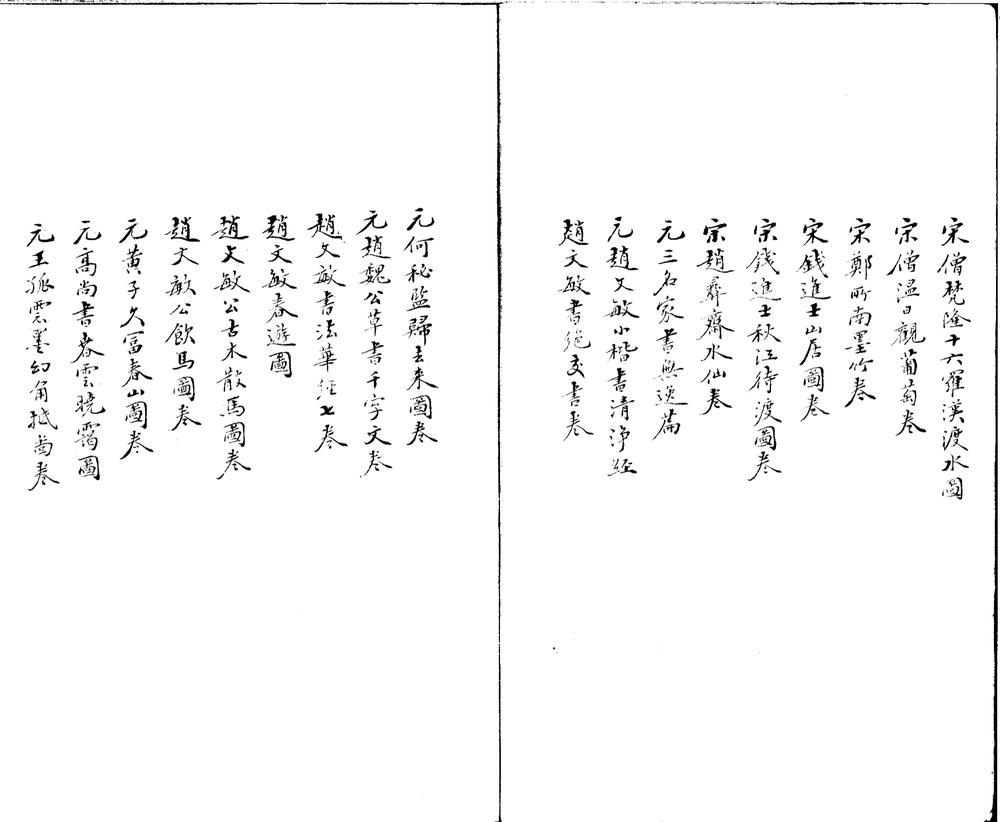 宋僧梵隆十六羅漢渡水圖
宋僧温日觀葡萄卷
宋鄭所南墨竹卷
宋錢進士山居圖卷
宋錢進士秋江待渡圖卷
宋趙彝齋水仙卷
元三名家書無逸篇
元趙文敏小楷書清浄經
趙文敏書絕交書卷
元何秘監歸去来圖卷
元趙魏公草書千字文卷
趙文敏書法華經七卷
趙文敏春遊圖
趙文敏公古木散馬圖卷
趙文敏公飲馬圖卷
元黄子久富春山圖卷
元高尚書春雲曉靄圖
元王孤雲墨幻角抵啚卷